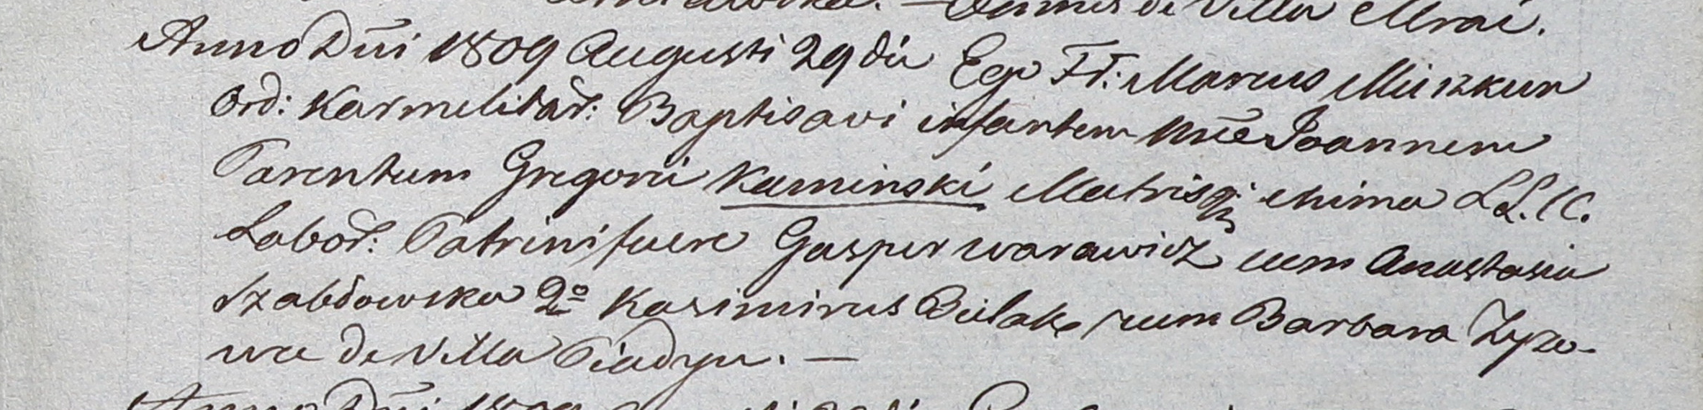 Omnes de Villa Mrai.
Anno Dñi 1809 Augusti 29 dii Ego Fr: Marcus Miszkun
Ord: Karmelitar̃: Baptisavi infantem nñe Joannem
Parentum Gregorii Kaminski Matrisq; Mima LL. CC.
Labor̃: Patrini fuere Gasper warawicz cum Anastasia
Szabłowska 2º Kasimirus Bulak cum Barbara Zyzo-
wa de Villa Piadyn. —
Anno Dñi 1809